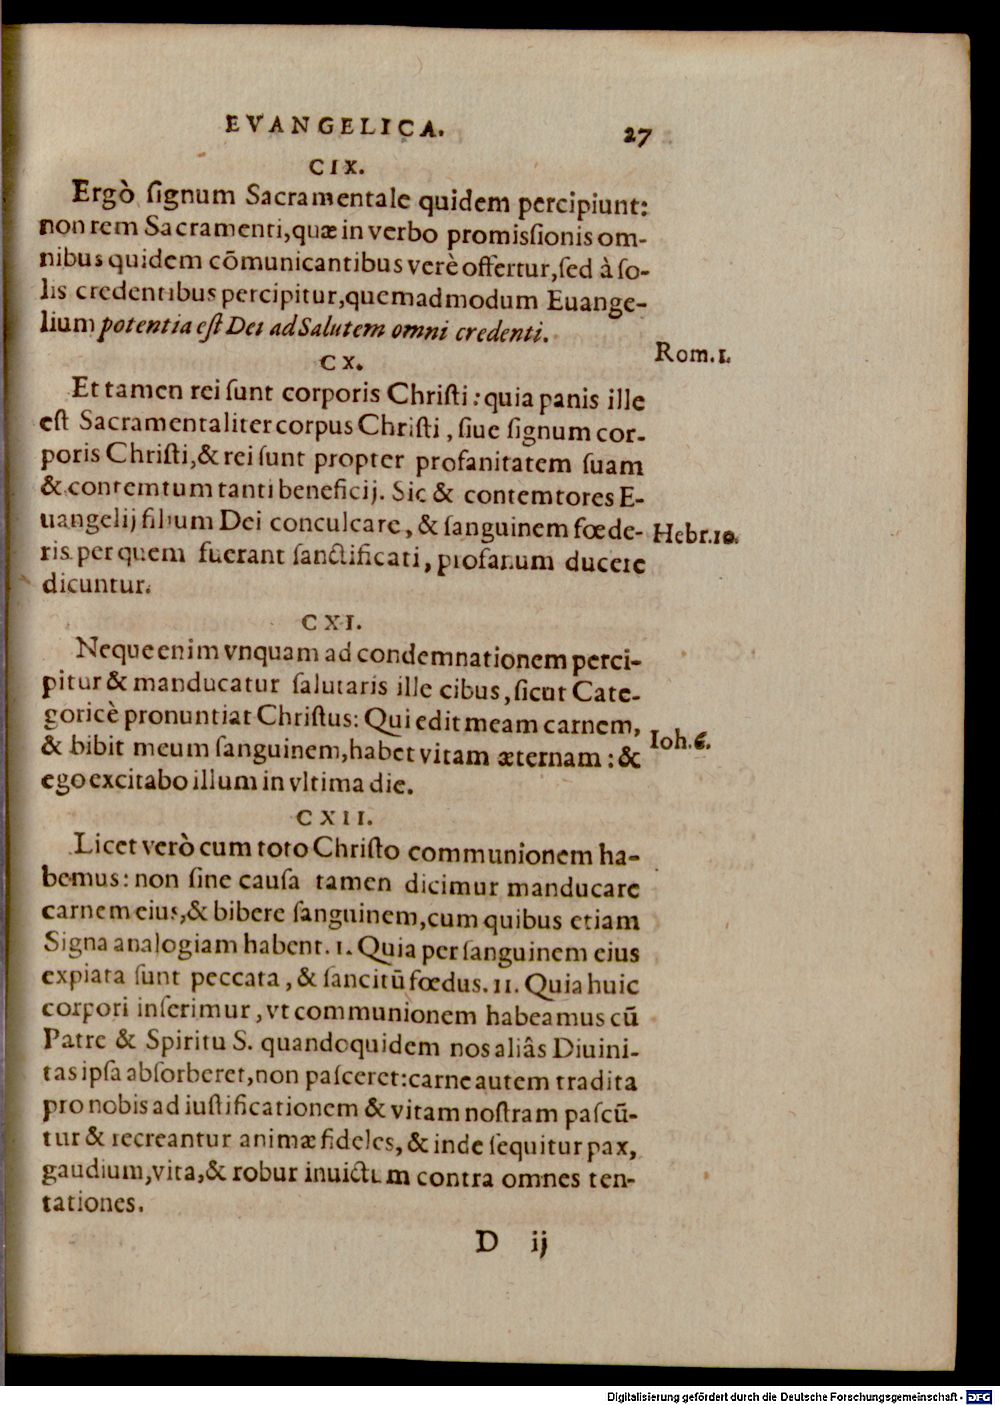 EVANGELICA. 27
CIX.
Ergò ſignum Sacramentale quidem percipiunt:
non rem Sacramenti, quæ in verbo promiſsionis om-
nibus quidem cõmunicantibus verè offertur, ſed à ſo-
lis credentibus percipitur, quemadmodum Euange-
lium potentia eſt Dei ad Salutem omni credenti.
Rom. 1.
CX.
Et tamen rei ſunt corporis Chriſti: quia panis ille
eſt Sacramentaliter corpus Chriſti, ſiue ſignum cor-
poris Chriſti, & rei ſunt propter profanitatem ſuam
& contemtum tanti beneficij. Sic & contemtores E-
uangelij filium Dei conculcare, & ſanguinem fœde-
Hebr. 10.
ris per quem fuerant ſanctificati, profanum ducere
dicuntur.
CXI.
Neque enim vnquam ad condemnationem perci-
pitur & manducatur ſalutaris ille cibus, ſicut Cate-
goricè pronuntiat Chriſtus: Qui edit meam carnem,
& bibit meum ſanguinem, habet vitam æternam: &
Ioh. 6.
ego excitabo illum in vltima die.
CXII.
Licet verò cum toto Chriſto communionem ha-
bemus: non ſine cauſa tamen dicimur manducare
carnem eius, & bibere ſanguinem, cum quibus etiam
Signa analogiam habent. 1. Quia per ſanguinem eius
expiata ſunt peccata, & ſancitũ fœdus. 11. Quia huic
corpori inſerimur, vt communionem habeamus cũ
Patre & Spiritu S. quandoquidem nos aliâs Diuini-
tas ipſa abſorberet, non paſceret: carne autem tradita
pro nobis ad iuſtificationem & vitam noſtram paſcũ-
tur & recreantur animæ fideles, & inde ſequitur pax,
gaudium, vita, & robur inuictum contra omnes ten-
tationes.
D ij
Digitalisierung gefördert durch die Deutsche Forschungsgemeinschaft - DFG